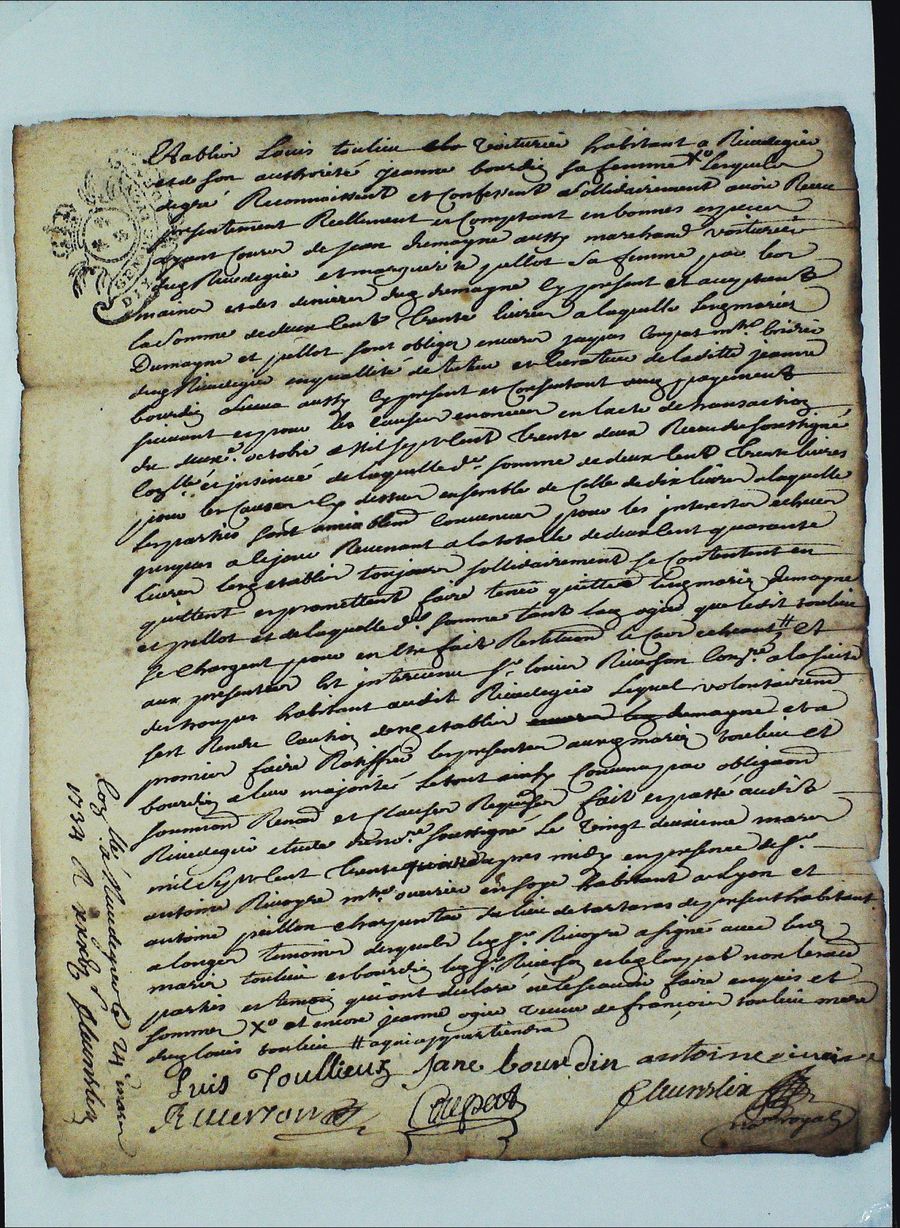 Etablis Louis toulieu voiturier habitant a Rivedegier
et de son authorité jeanne bourdin sa femme Xo lesquels
degré Reconnoissent et Confessent sollidairement avoir Receu
presentement Reellement et Comptant en bonnes especes
ayant Cours de jean dumagne aussy marchand voiturier
dud Rivedegier et marguerite pellot sa femme par les
mains et des deniers dud dumagne Cy present et acceptant
la somme de deux Cent trente livres a laquelle lesd mariés
Dumagne et pellot sont obliges envers jacques Coupat
dud Rivedegier en quallité de tuteur et Curateur de laditte jeanne
bourdin aussy Cy present et Consentant aud payement
suivant et pour les Causes enoncées en lacte de transaction
du deuxe octobre Mil sept Cent trente deux Receu du soussigné
Collé et insinué de laquelle de somme de deux Cent trente livres
pour les Causes Cy dessus ensemble de Celle de dix livres a laquelle
les parties sont amiablemt Convenues pour les interests echeus
jusques a le jour Revenant a la totalle de deux Cent quarante
livres lesd establis toujours sollidairement se Contentent en
quittent et promettent faire tenir quittes lesd mariés dumagne
et pellot et de laquelle de somme tant lad ogier que ledit toulieu
se Chargent pour en Etre fait Restitution le Cas echeant # et
aux presentes est intervenu Sr Riverson a la suite
des troupes habitant audit Rivedegier lequel volontairemt
sest Rendu Caution desd establis dumagne et a
promis faire Ratiffier les presentes auxd mariés toulieu et
bourdin a leur majorité le tout ainsy Convenu par obligaon
soumion Renon et Clauses Requises fait et passé audit
Rivedegier etude du nore soussigné le vingt deuxieme mars
mil sept Cent trente quatre apres midy en presence de Sr
antoine Rivoyre mtre ouvrier en soye habitant a Lyon et
antoine peillon charpentier du lieu de tartaras de present habitant
a longes temoins desquels led Sr Rivoyre a signé avec lesd
mariés toulieu et bourdin led Sr Riverson et led Coupat non les aud
parties et temoin qui ont declaré ne le scavoir faire enquis et
sommés Xo et encore jeanne ogier veuve de françois toulieu mere
dud louis toulieu # a qui appartiendra
Luis Toullieux Jane bourdin antoine rivoire
Riverson Coupat fleurdelix
no royal
Collé a Rivedegier le 24 mars
1734 R fleurdelix
GEN DE LYON